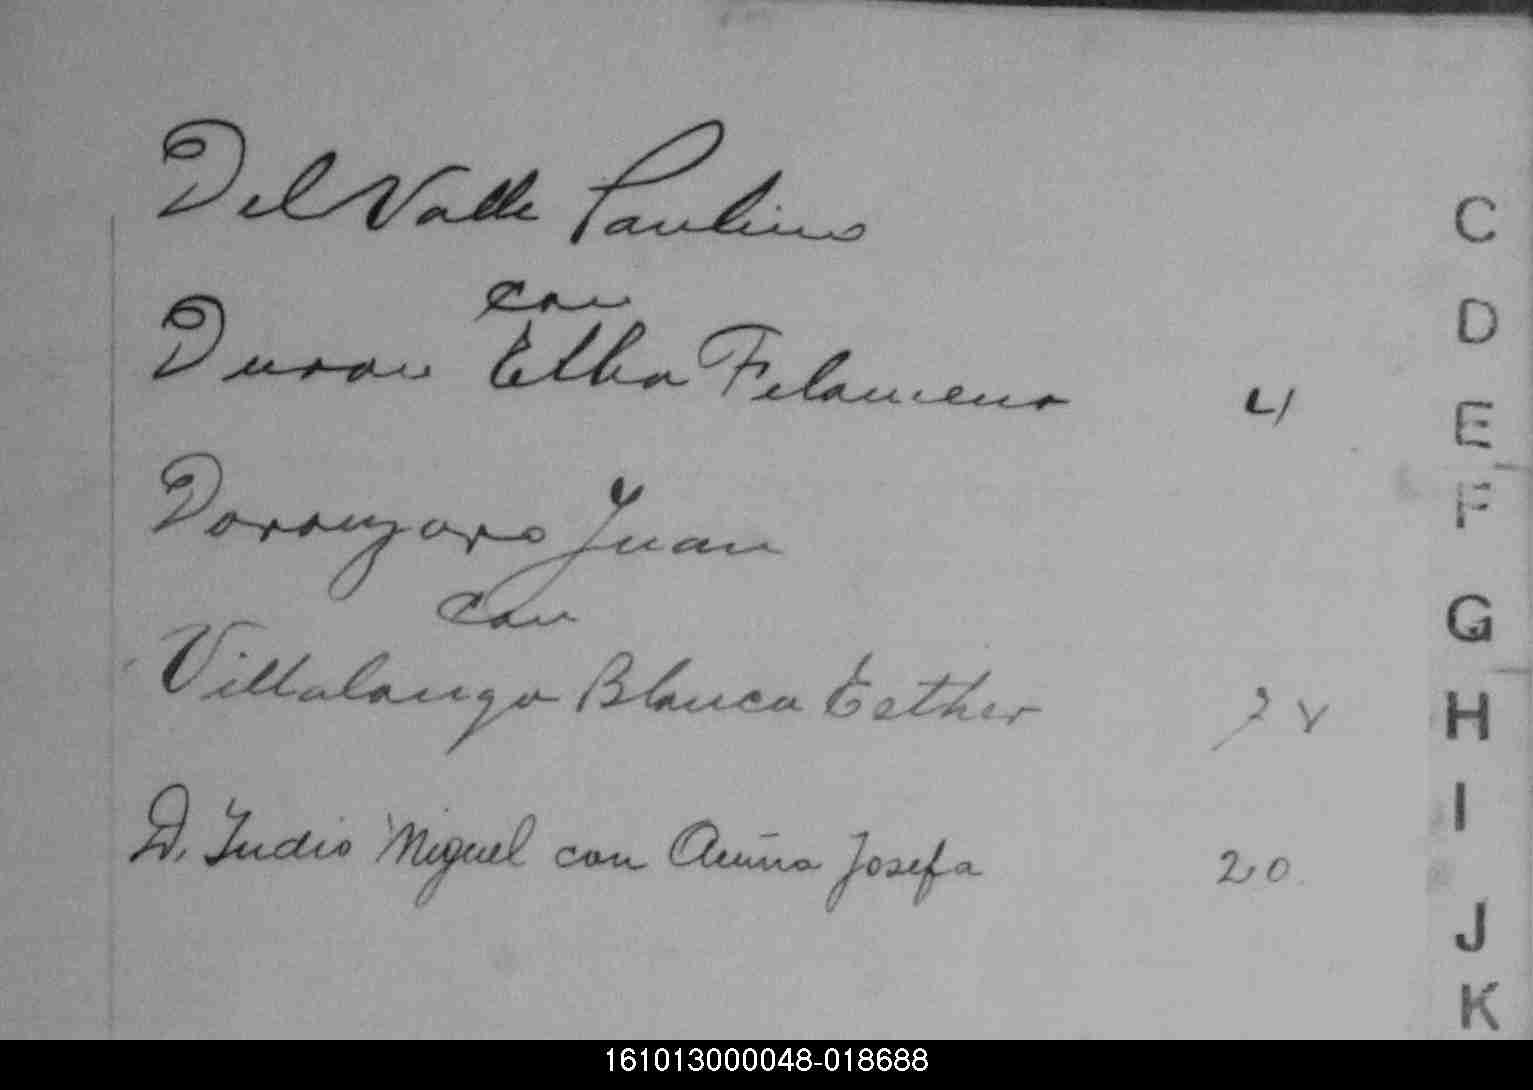 Del Valle Paulino
con
Duran Elba Felamena 4
Doronzoro Juan
Con
Villalonga Blanca Esther 7 V
D. Iudio Miguel con Acuña Josefa 20.
C
D
E
F
G
H
I
J
K
161013000048-018688